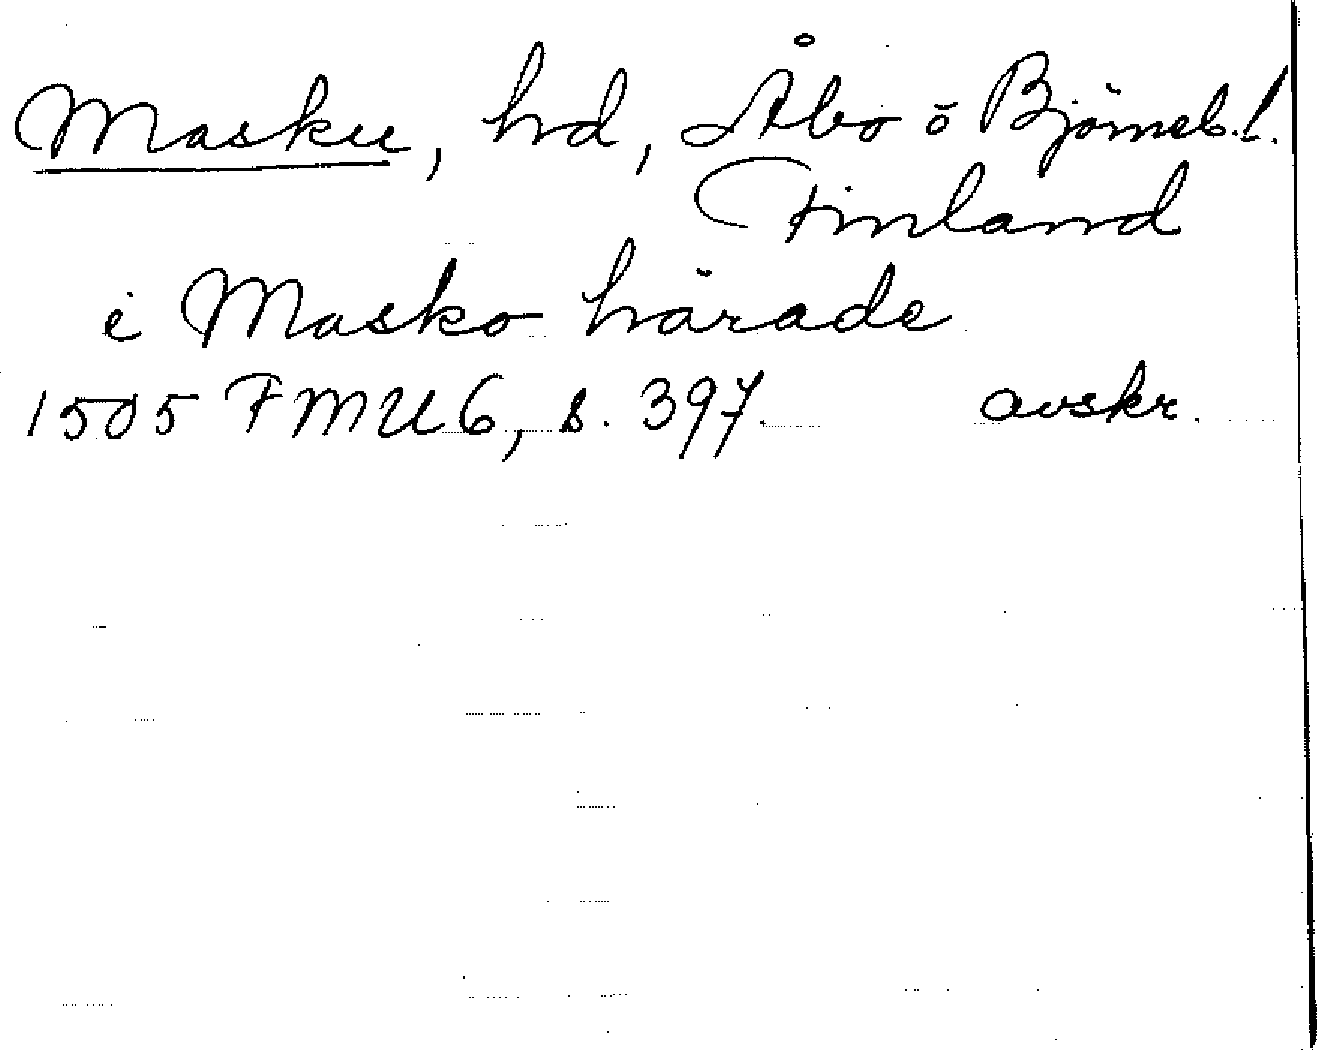 Masku, hd, Åbo o Björneb. l.
Finland
i Masko härade
1505 FMU 6, s. 397. avskr.